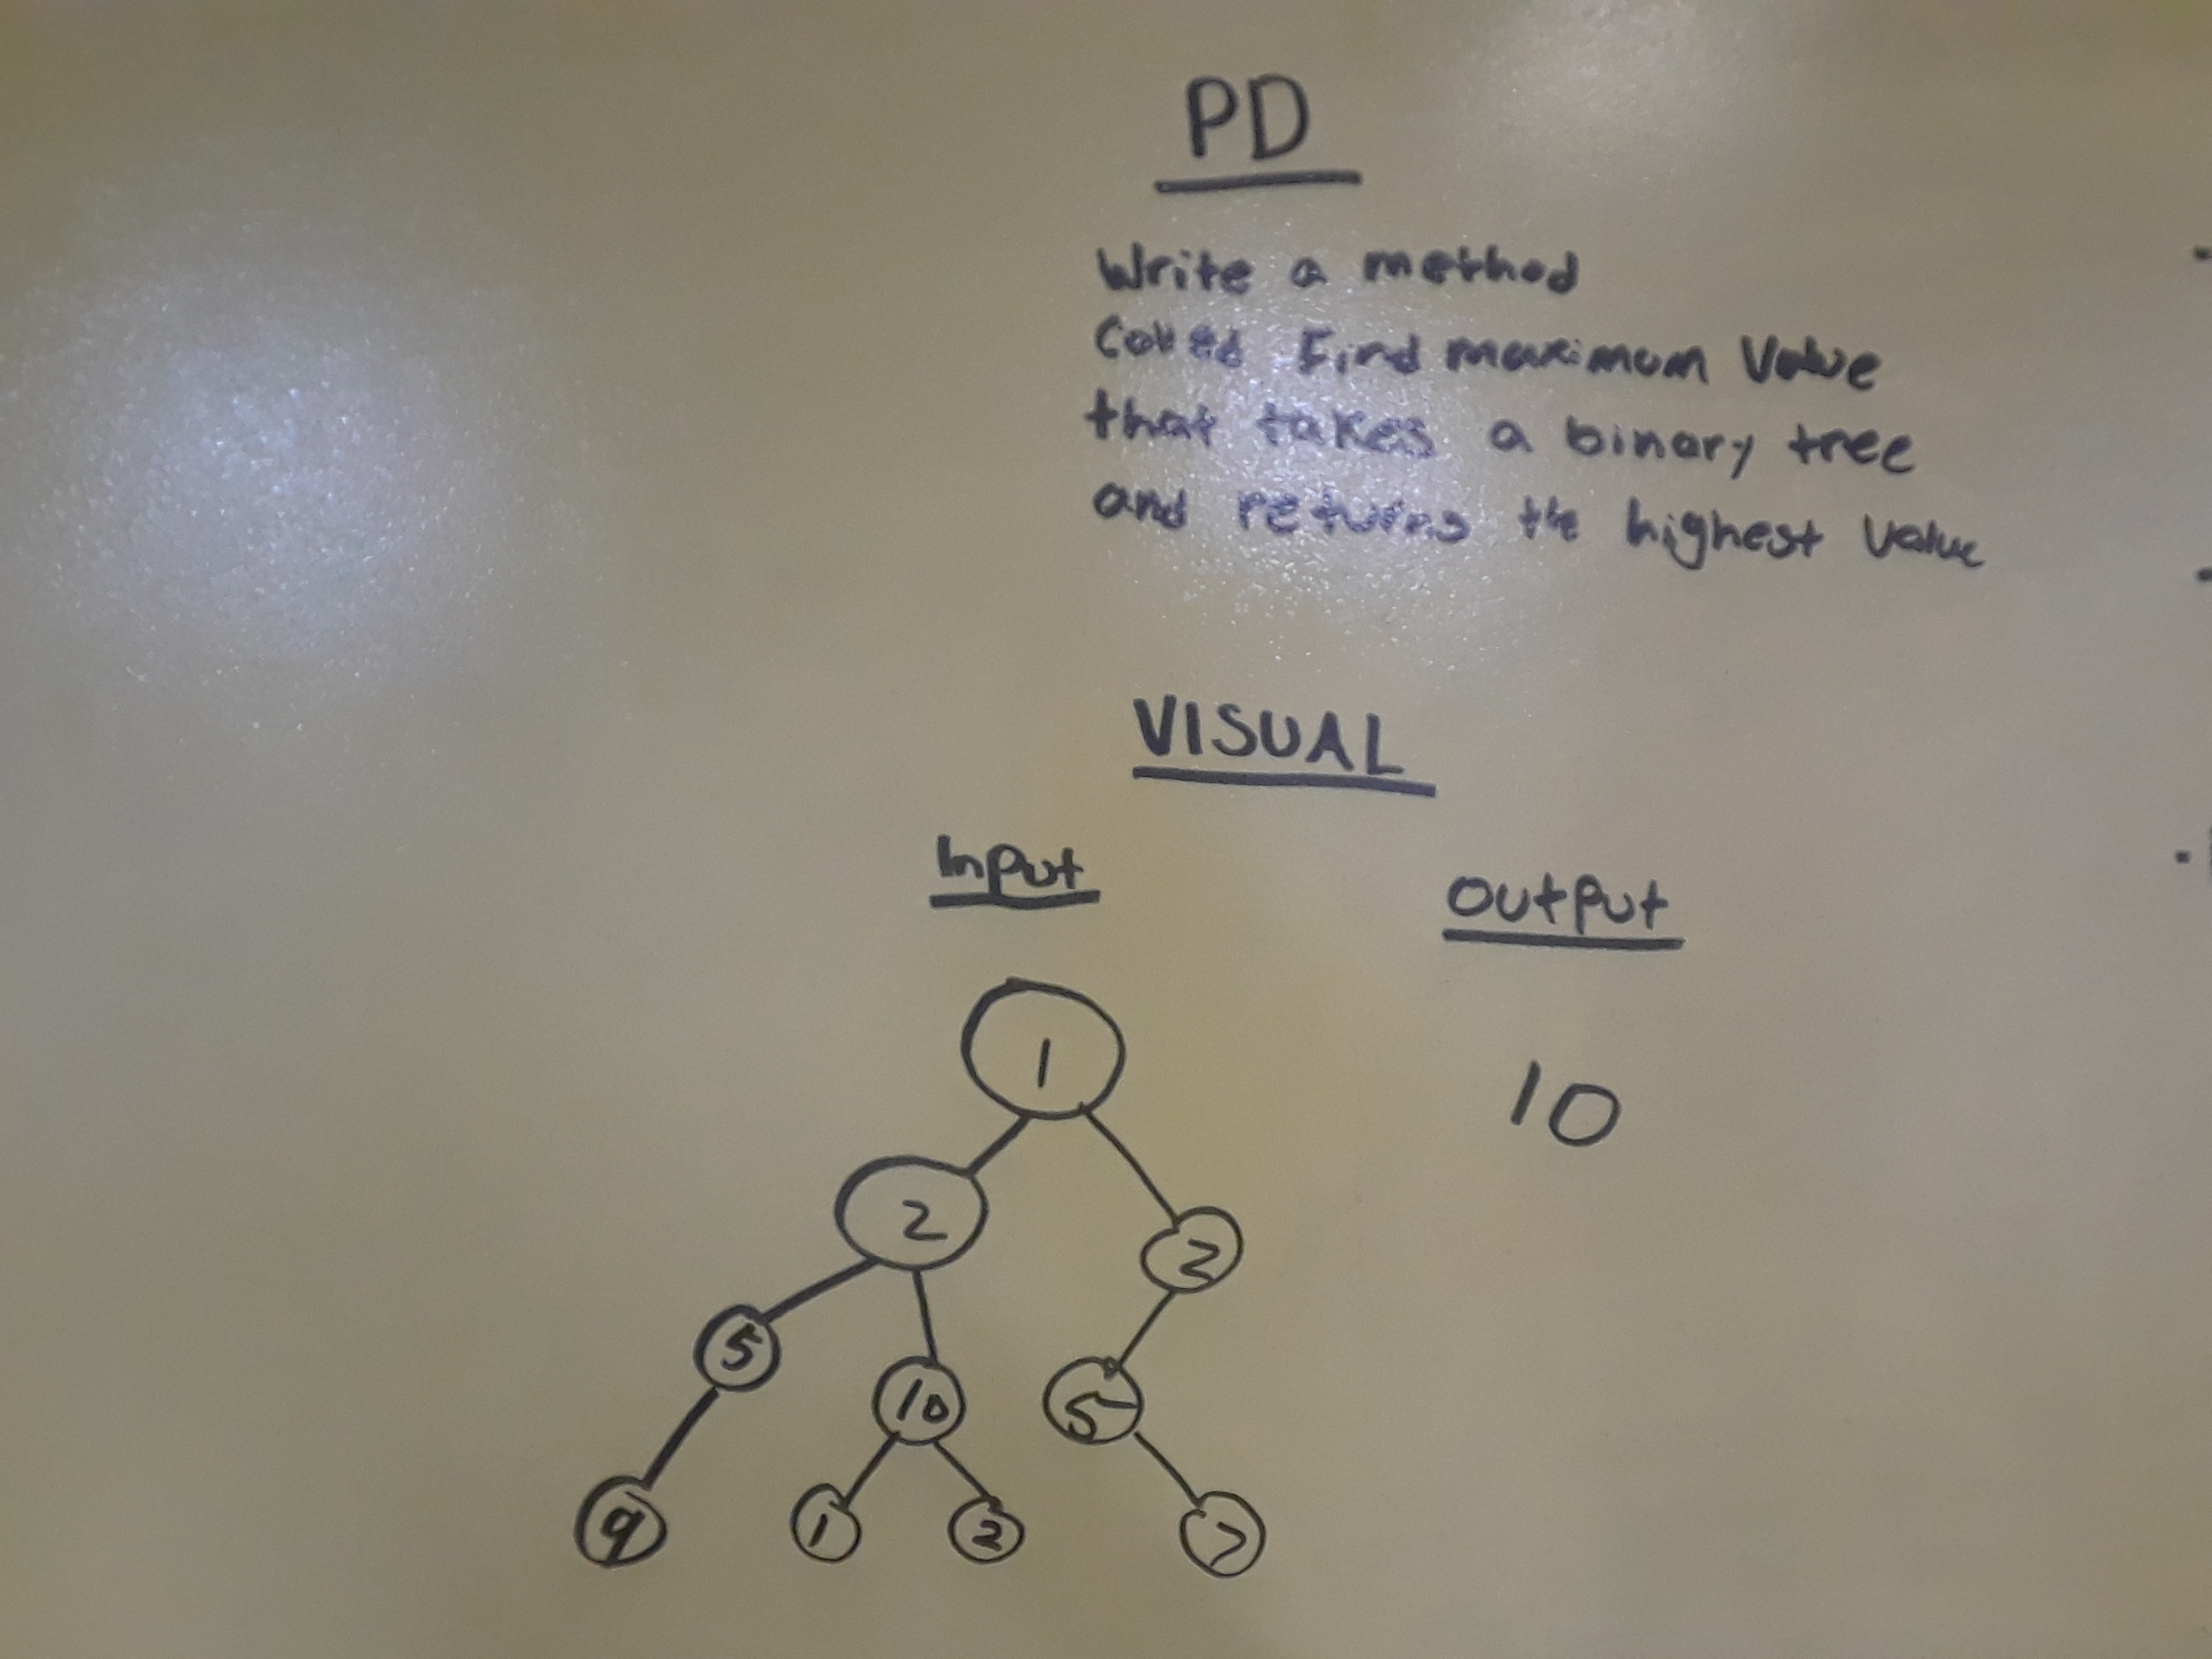 PD
Write a method
Called Find maximum Value
that takes a binary tree
and returns the highest value
VISUAL
Input
Output
1
10
2
2
5
10
5
9
1
2
7